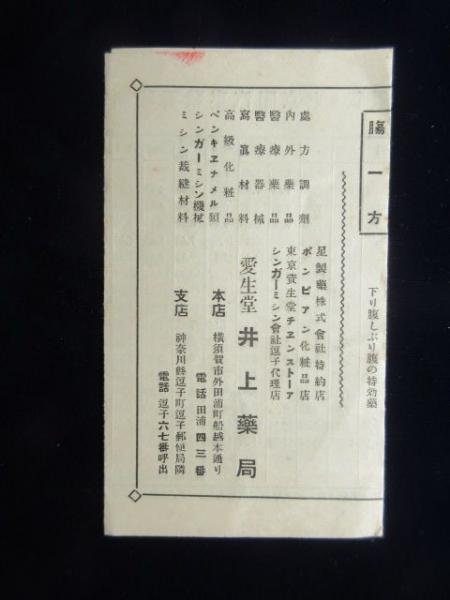 腸一方
下り腹しぶり腹の特効藥
處方調劑
内外藥品
醫療藥品
醫療器械
寫眞材料
高級化粧品
ペンキヱナメル類
シンガーミシン機械
ミシン裁縫材料
星製藥株式會社特約店
ポンピアン化粧品店
東京資生堂チヱンストーア
シンガーミシン會社逗子代理店
愛生堂 井上藥局
本店 横須賀市外田浦町船越本通り
電話 田浦 四三番
支店 神奈川縣逗子町逗子郵便局隣
電話 逗子六七番呼出